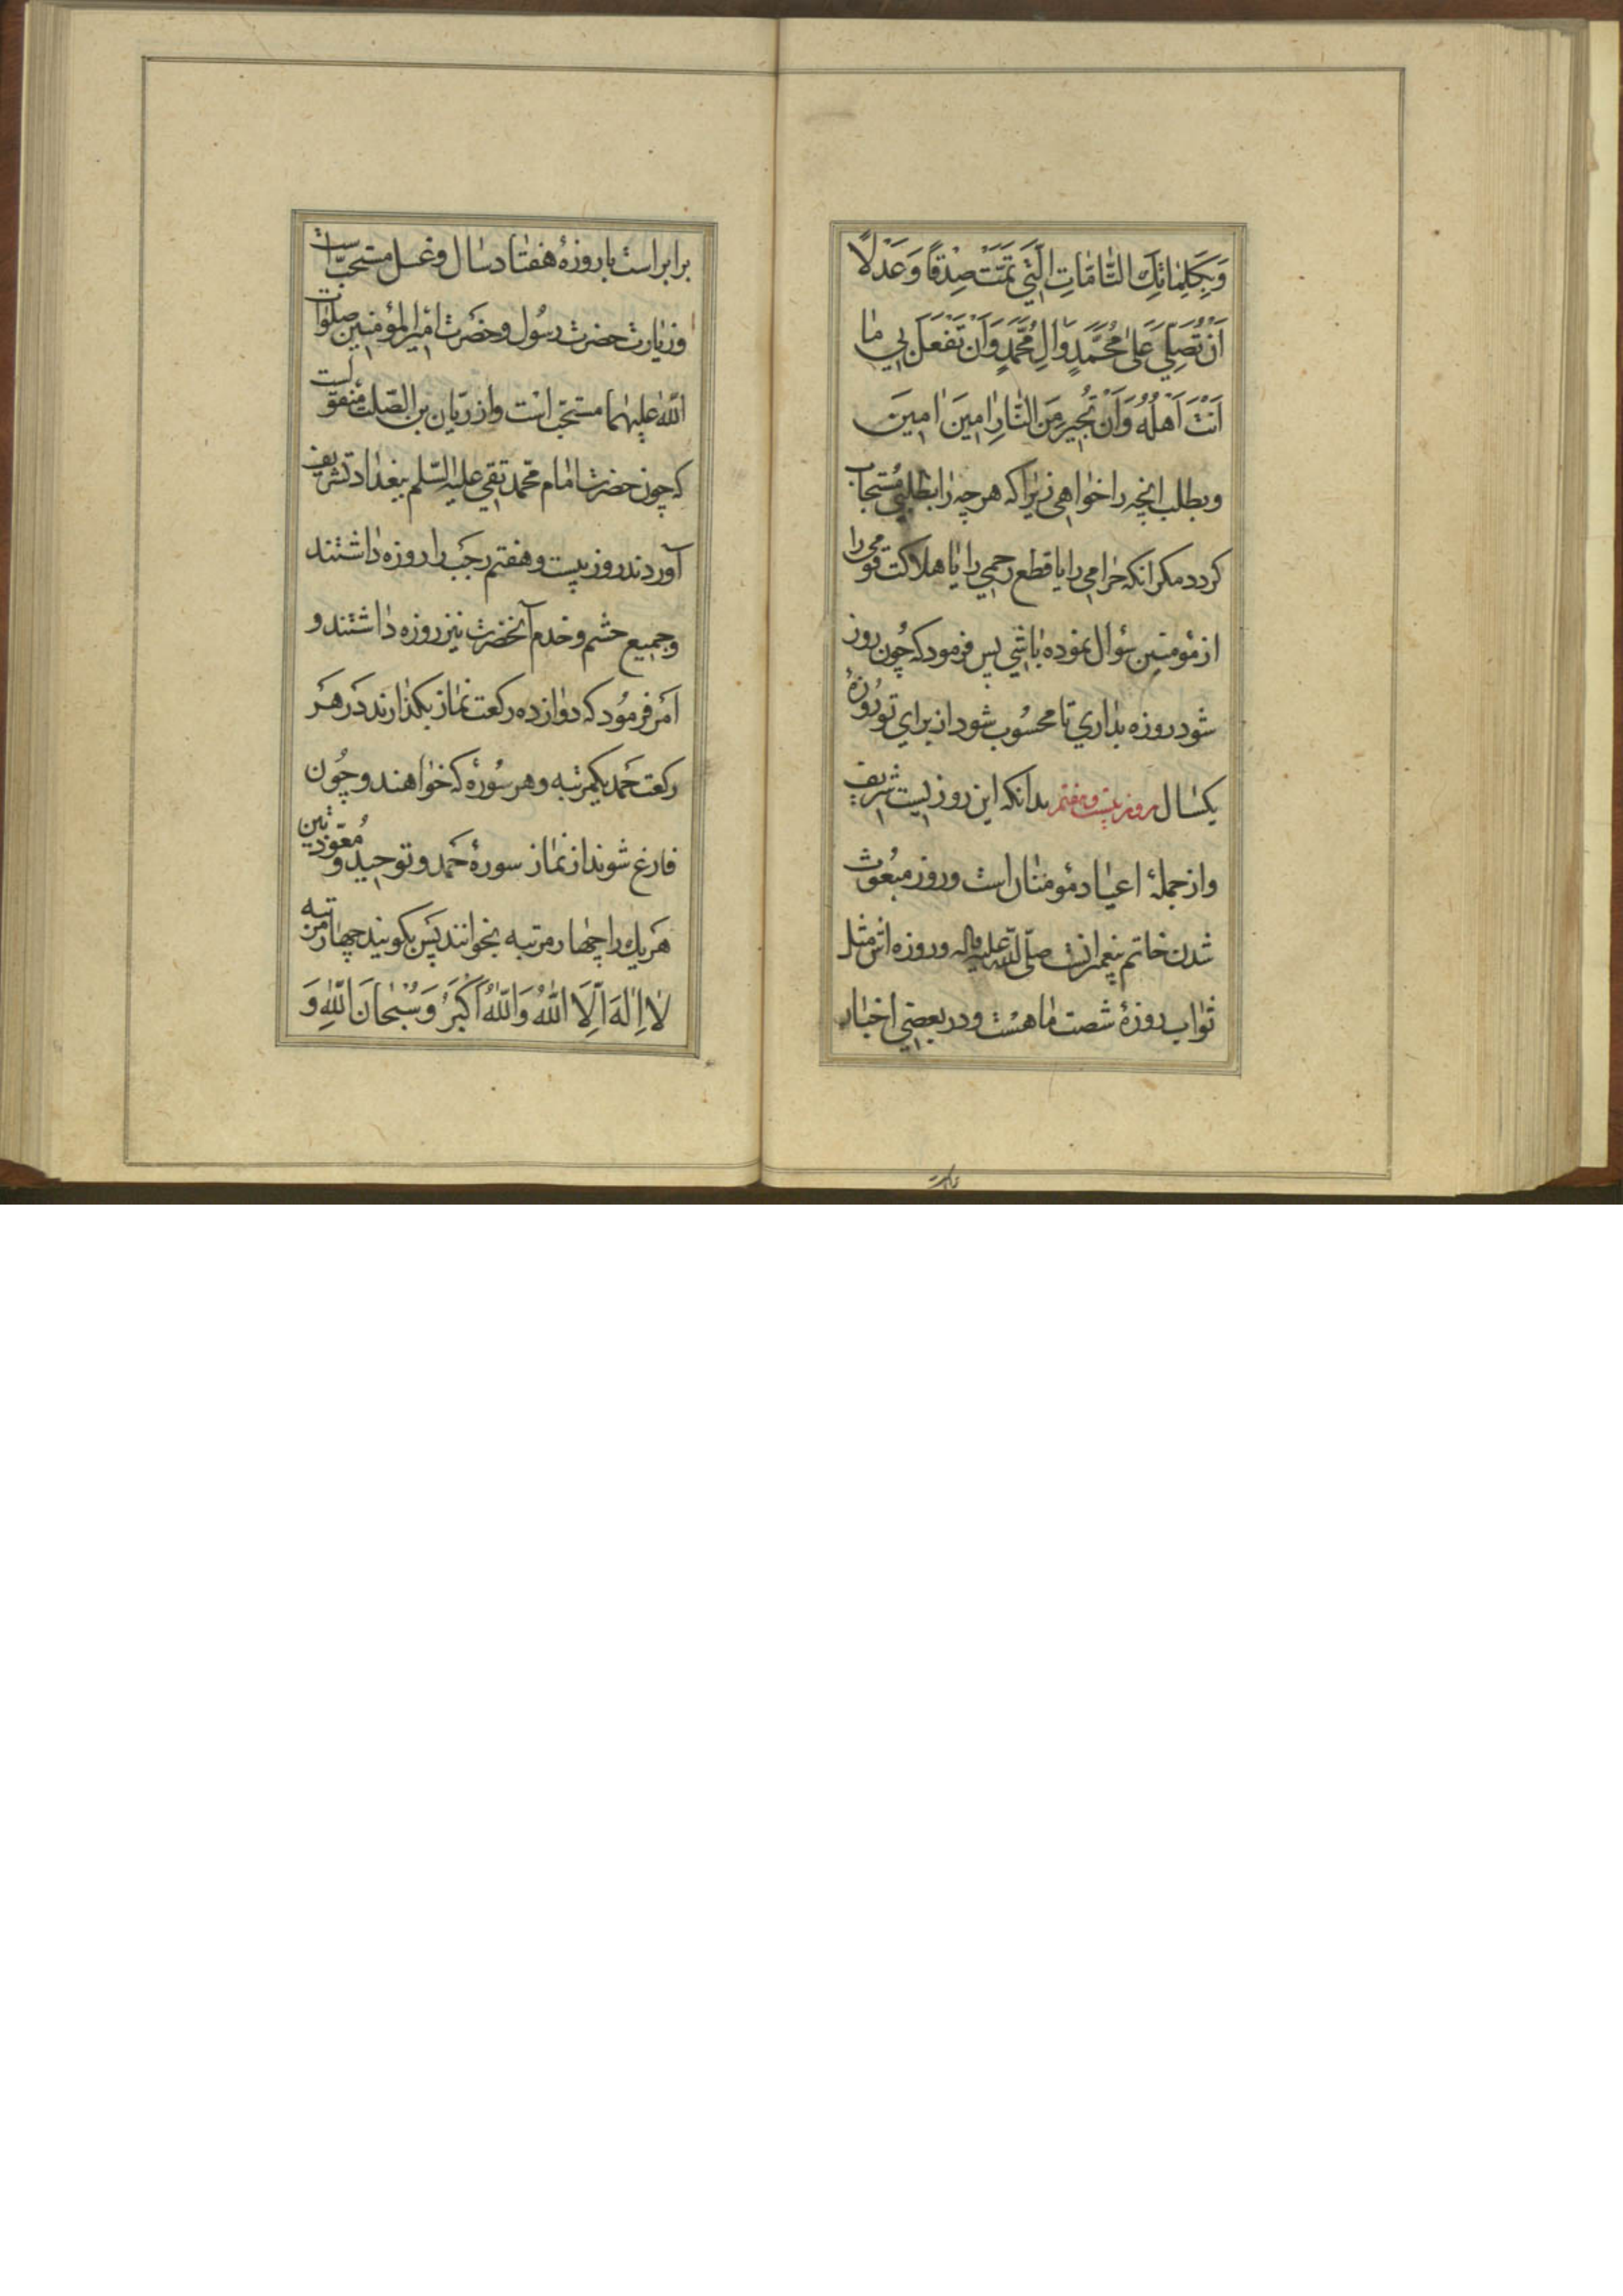 وَبِكَلِمٰاتِكَ التّٰامّٰاتِ الَّتِي تَمَّتْ صِدْقًا وَعَدْلًا
اَنْ تُصَلِّيَ عَلىٰ مُحَمَّدٍ وَالِ مُحَمَّدٍ وَاَنْ تَفْعَلَ بِي مٰا
اَنْتَ اَهْلُهُ وَاَنْ تُجِيرَ مِنَ النّٰارِ امِينَ امِينَ
وبطلب انچه را خواهی زیرا که هر چه را بطلبی مستجاب
کردد مکر انکه حرامی را یا قطع رحمی را یا هلاکت قومی را
از مؤمنین سؤال نموده باشی پس فرمود که چون روز
شود روزه بداری تا محسوب شود از برای تو روزهٔ
یکسال روز بیست و هفتم بدانکه این روزیست شریف
و از جملهٔ اعیاد مؤمنان است و روز مبعوث
شدن خاتم پیغمبرانست صلّی اللّه علیه واله و روزه اش مثل
ثواب روزهٔ شصت ماهست و در بعضی اخبار
برابر است با روزهٔ هفتاد سال و غسل مستحبّ است
و زیارت حضرت رسول و حضرت امیر المؤمنین صلوات
اللّه علیهما مستحبّ است و از ریّان بن الصّلت منقولست
که چون حضرت امام محمد تقی علیه السّلم ببغداد تشریف
آوردند روز بیست و هفتم رجب را روزه داشتند
و جمیع حشم و خدم آنحضرت نیز روزه داشتند و
امر فرمود که دوازده رکعت نماز بکذارند در هر
رکعت حمد یکمرتبه و هر سوره که خواهند و چون
فارغ شوند از نماز سورهٔ حمد و توحید و معوّذتین
هر یك را چهار مرتبه بخوانند پس بکویند چهار مرتبه
لٰا اِلٰهَ اِلَّا اللّٰهُ وَاللّٰهُ اَكْبَرُ وَسُبْحٰانَ اللّٰهِ وَ